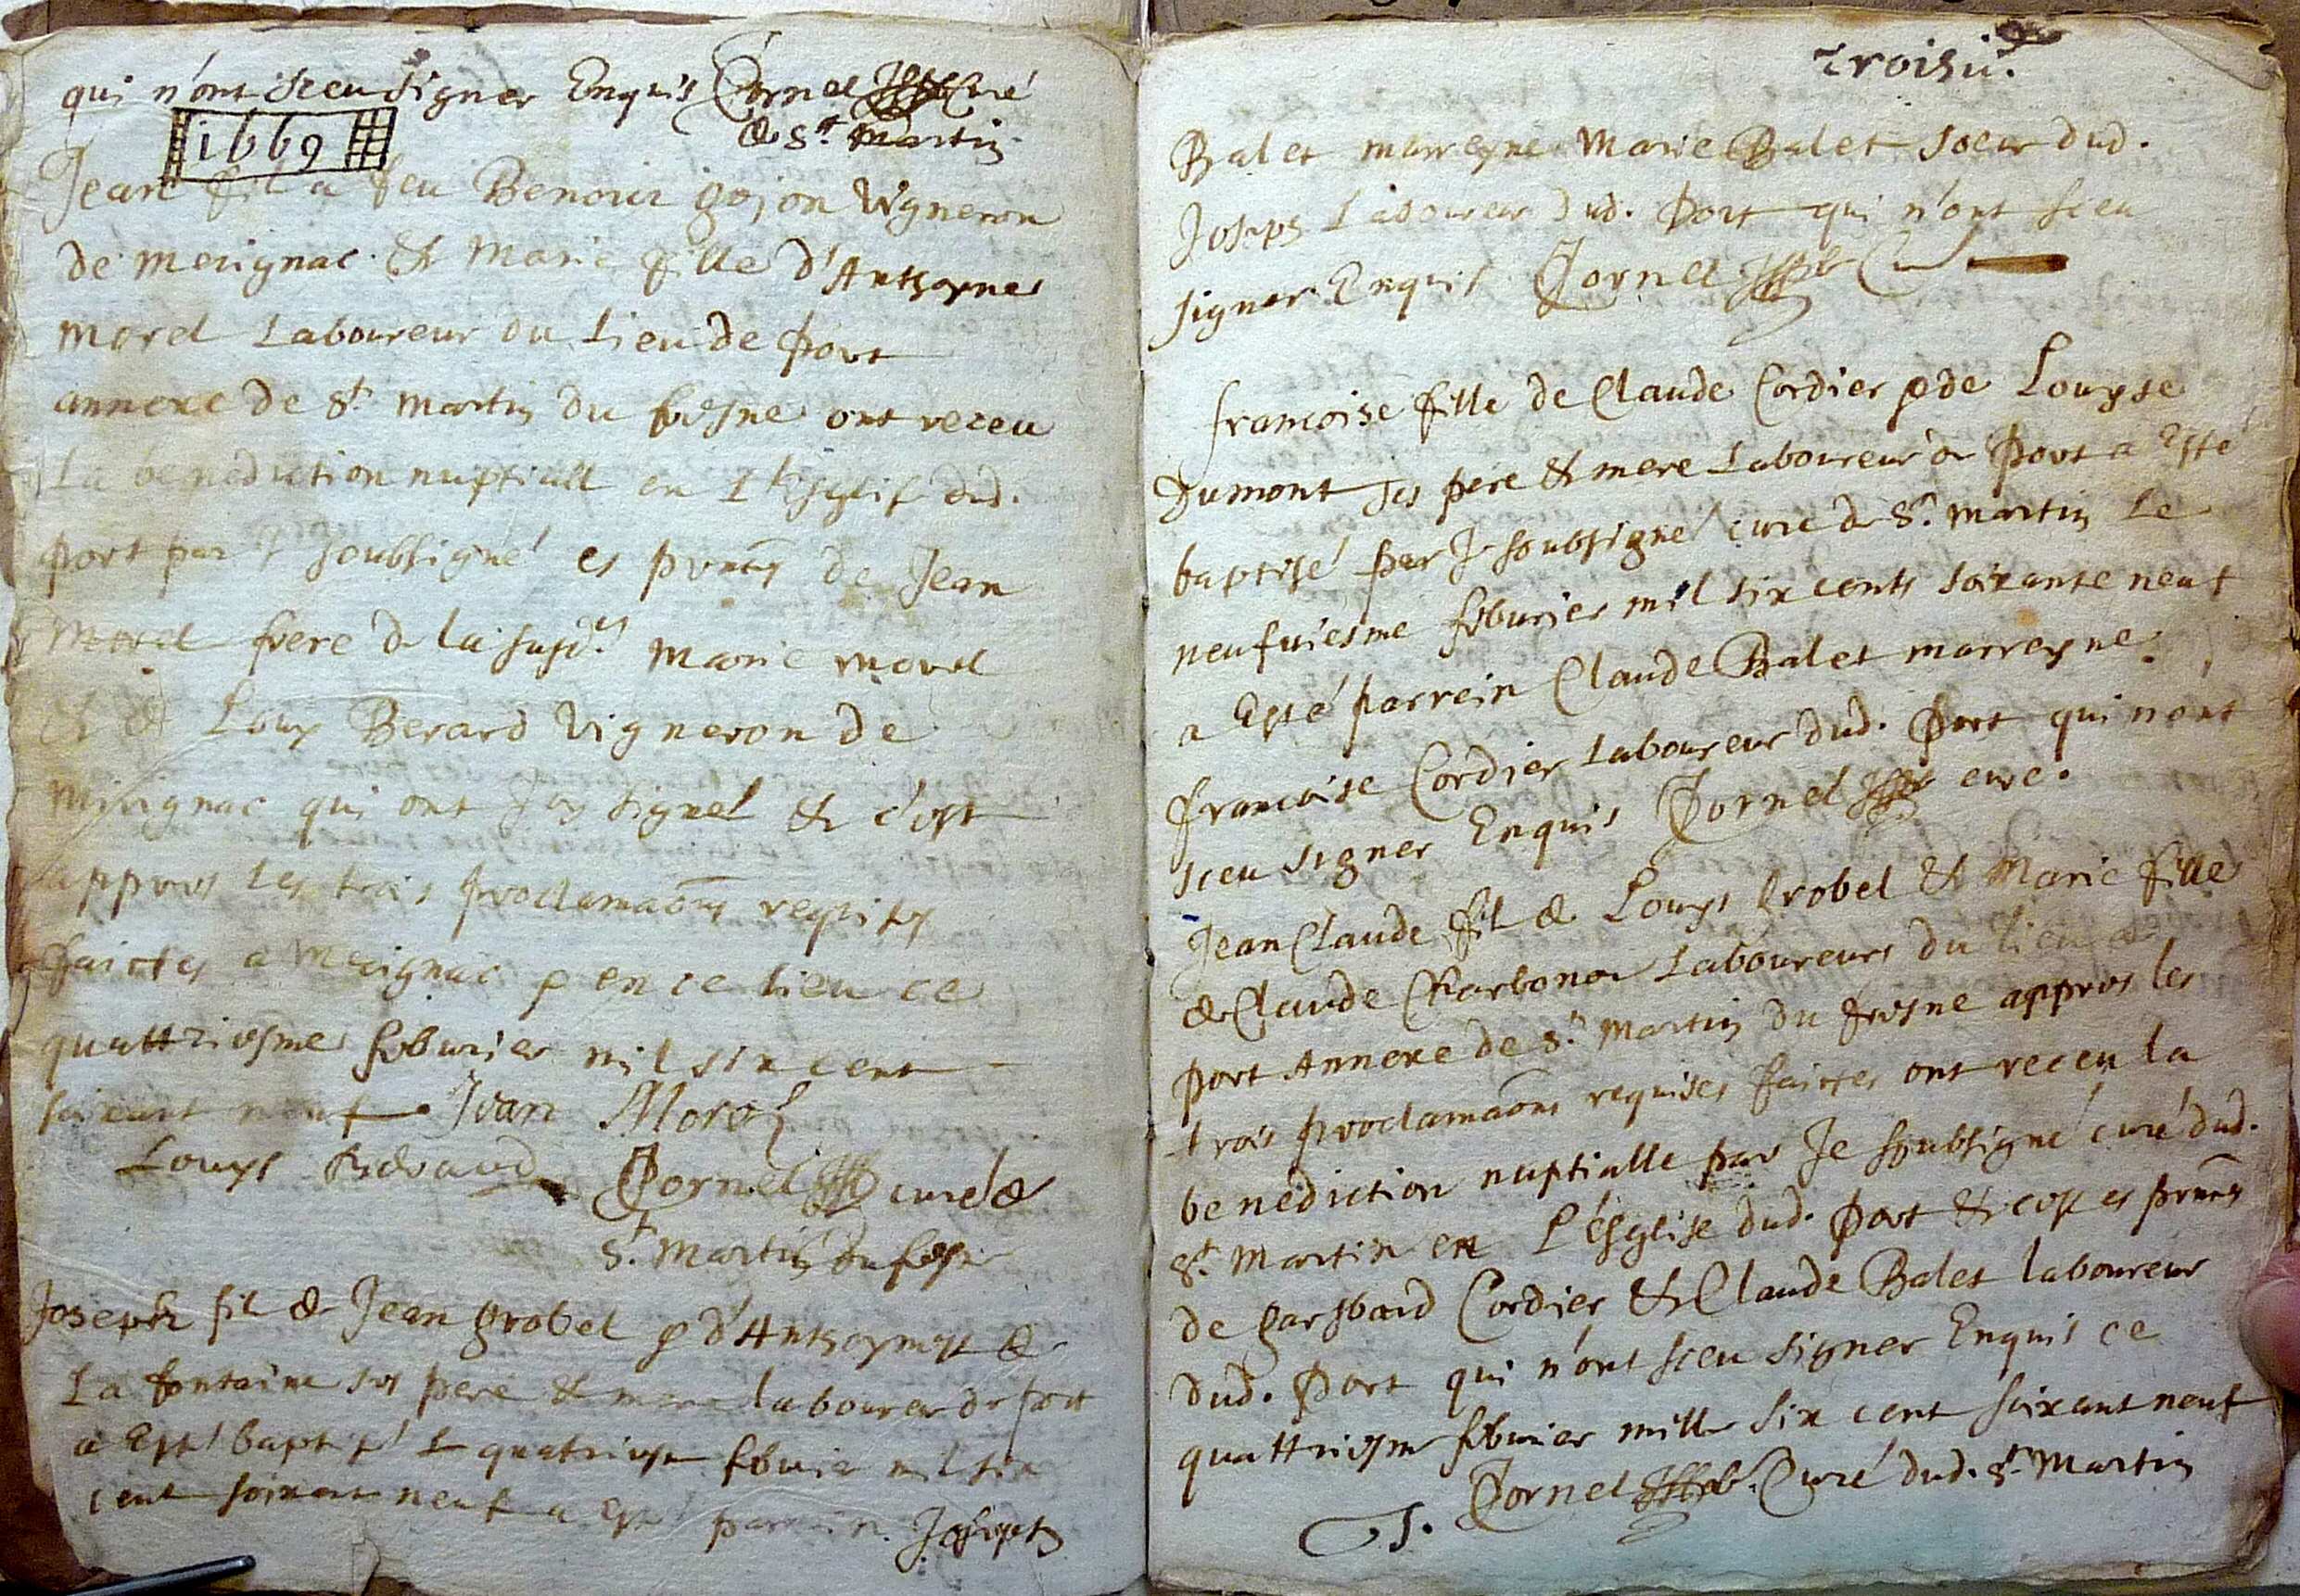 qui n'ont sceu signer Enquis Cornel Curé
de St. Martin
1669
Jean fil a feu Benoict gojon Vigneron
de merignac. & Marie fille d'Anthoynes
morel Laboureur du Lieu de port
annexe de St. martin du fresne ont receu
La benediction nuptiall en L'Esglise dud.
port par Je soubsigné es pntes de Jean
Morel frere de la susd. marie morel
& de Louys Berard Vigneron de
mirignac qui ont Icy signel & c'est
appres Les trois proclamaons requises
faictes a Merignac & en ce lieu ce
quattriesme feburier mil six cent
soixant neuf Jean Morel
Louys Berard Cornel cure de
St. Martin du fresne
Joseph fil de Jean grobel & d'Anthoyne de
La fontaine ses pere & mere laboureur de port
a Esté baptisé Le quatriesme feburier mil six
cent soixant neuf a Esté parrein Joseph
Troisie.
Balet marreyne Marie Balet soeur dud.
Joseph Laboureur dud. Port qui n'ont sceu
signer Enquis Cornel Curé
francoise fille de Claude Cordier & de Louyse
Dumont ses pere & mere Laboureur de Port a Esté
baptisé par Je soubsigné curé de St. Martin Le
neufuiesme feburier mil six cents soixante neuf
a Esté parrein Claude Balet marreyne
francoise Cordier Laboureur dud. Port qui n'ont
sceu signer Enquis Cornel cure.
Jean Claude fil de Louys Grobel & Marie fille
de Claude Charbonou Laboureurs du lieu de
port Annexe de St. Martin du fresne appres les
trois proclamaons requises faictes ont receu la
benediction nuptialle par Je soubsigné curé dud.
St. Martin en L'ésglise dud. Port & c'est es pntes
de Gaspard Cordier & Claude Balet laboureur
dud. Port qui n'ont sceu signer Enquis ce
quattriesme feburier mille six cent soixant neuf
Cornel Curé dud. St. Martin